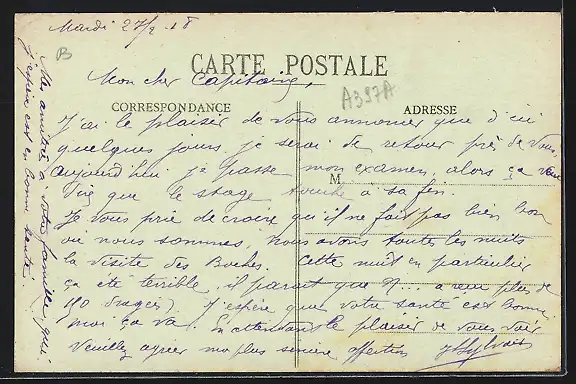 Mardi 27/2 18
B
CARTE POSTALE
Mon cher Capitaine,
A397A
CORRESPONDANCE
ADRESSE
J'ai le plaisir de vous annoncer que d'ici
quelques jours je serai de retour près de vous,
aujourd'hui je passe mon examen, alors ça veut
M
dire que le stage touche à sa fin.
Je vous prie de croire qu'il ne fait pas bien bon
où nous sommes, nous avons toutes les nuits
la visite des Boches. Cette nuit en particulier
ça été terrible, il parait que N... a reçu plus de
190 dragées). J'espère que votre santé est bonne
moi ça va. En attendant le plaisir de vous voir
Veuillez agréer ma plus sincère affection
Mes amitiés à votre famille, que
j'espère est en bonne santé.